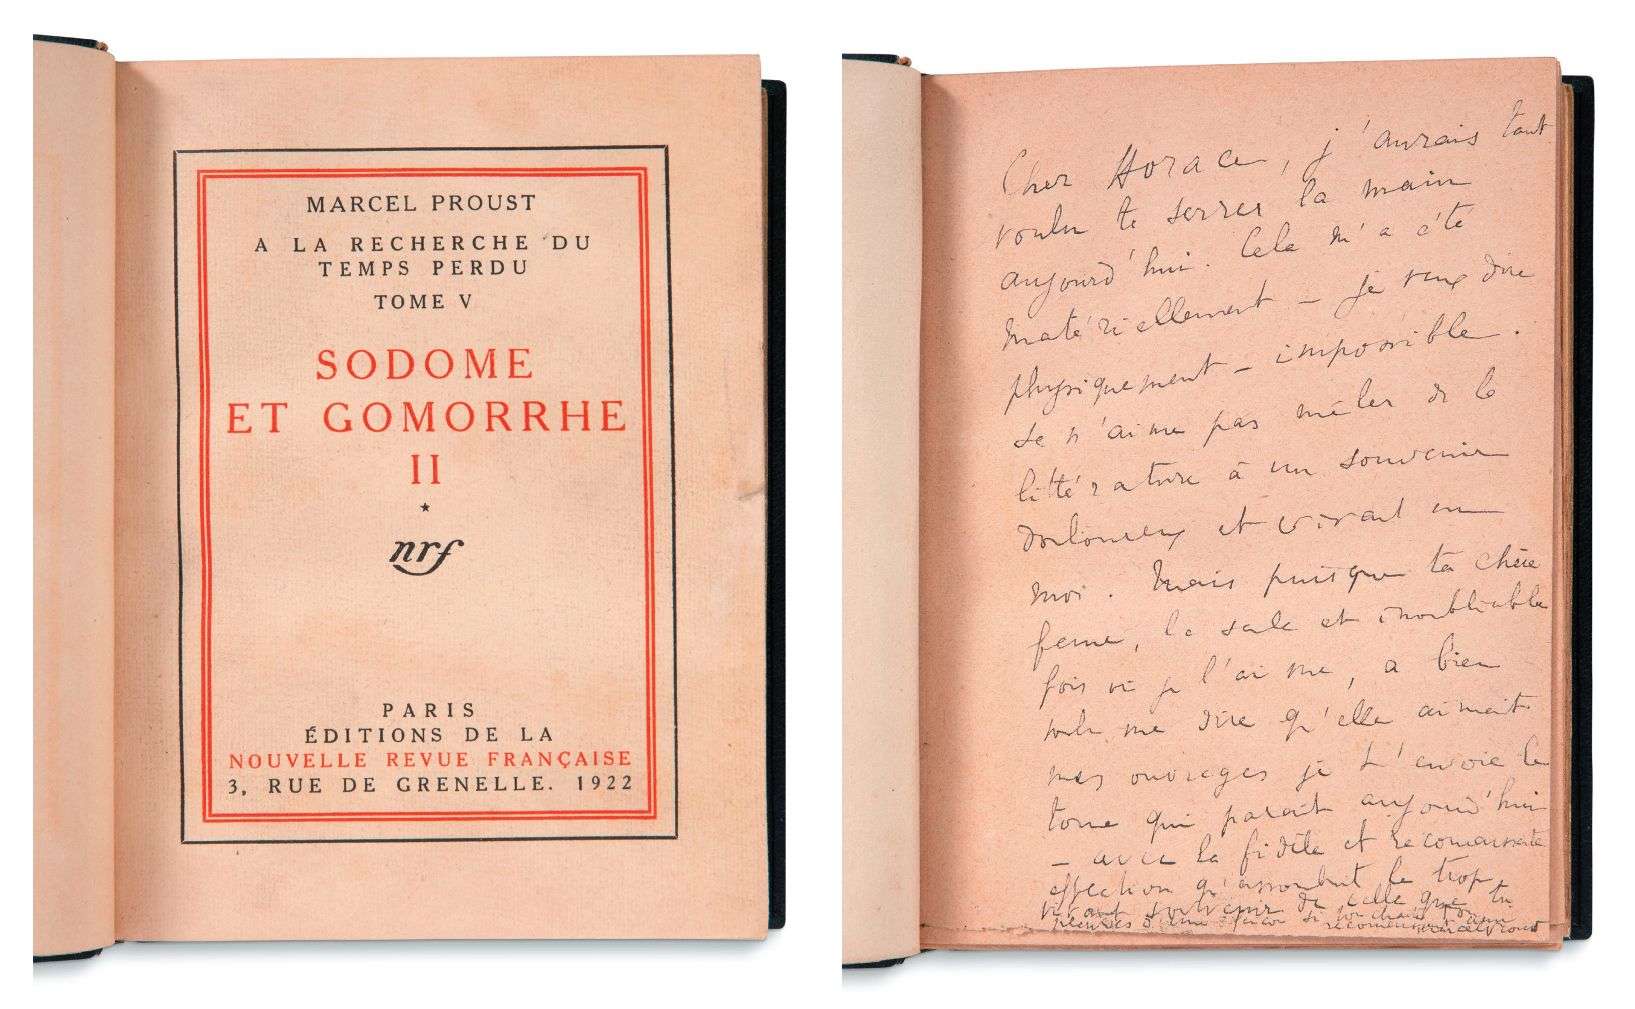 MARCEL PROUST
A LA RECHERCHE DU
TEMPS PERDU
TOME V
SODOME
ET GOMORRHE
II
*
nrf
PARIS
ÉDITIONS DE LA
NOUVELLE REVUE FRANÇAISE
3, RUE DE GRENELLE. 1922
Cher Horace, j'aurais tant
voulu te serrer la main
aujourd'hui. Cela m'a été
matériellement – je veux dire
physiquement – impossible.
Je n'aime pas mêler de la
littérature à un souvenir
douloureux et vivant en
moi. Mais puisque ta chère
femme, la seule et inoubliable
fois où je l'ai vue, a bien
voulu me dire qu'elle aimait
mes ouvrages je t'envoie le
tome qui paraît aujourd'hui
– avec la fidèle et reconnaissante
affection qu'assombrit le trop
vivant souvenir de celle que tu
pleures d'une façon si touchante